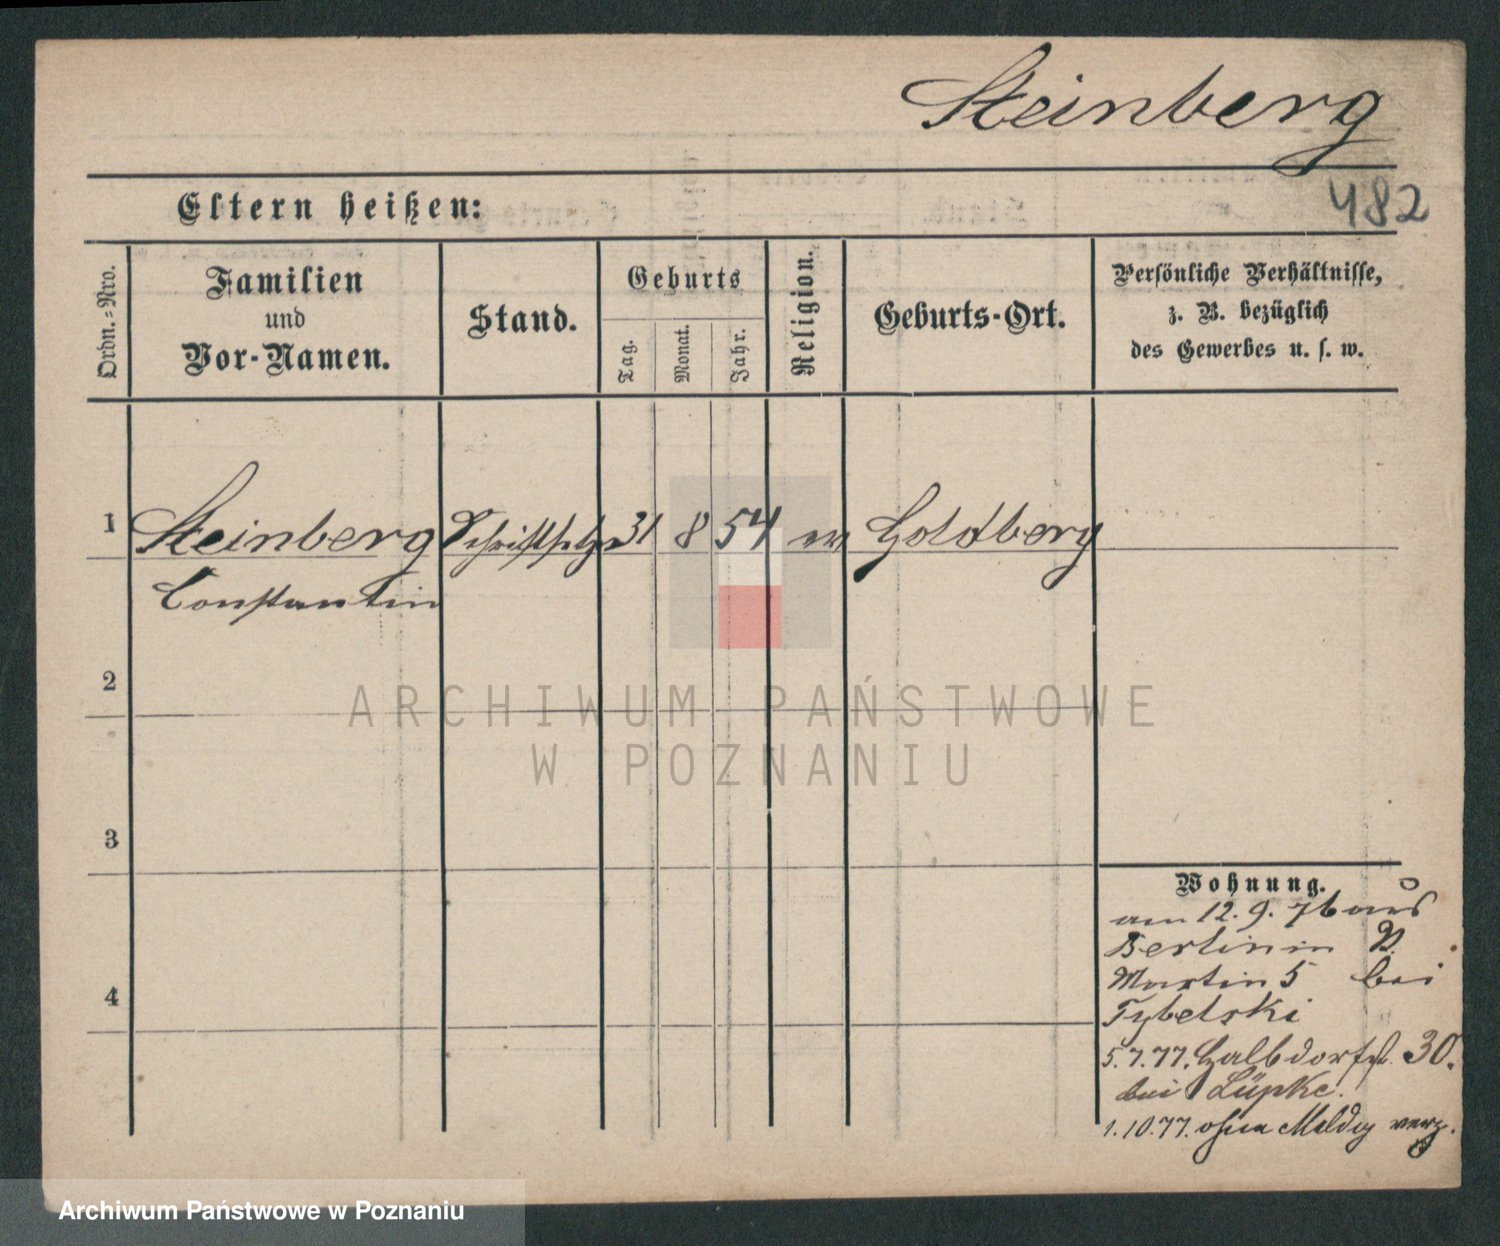 Steinberg
482
Eltern heißen:
Ordn.=Nro.
Familien
und
Vor-Namen.
Stand.
Geburts
Tag.
Monat.
Jahr.
Religion.
Geburts-Ort.
Persönliche Verhältnisse,
z. B. bezüglich
des Gewerbes u. s. w.
1 Steinberg Schriftsetzer 31 8 54 ev Goldberg
Constantin
2
3
4
ARCHIWUM PAŃSTWOWE
W POZNANIU
Wohnung.
am 12. 9. 76 aus
Berlin in
Martin 5 bei
Tybelski
5.7.77. Halbdorfst. 30.
bei Lüpke.
1.10.77. ohne Meldg verz.
Archiwum Państwowe w Poznaniu